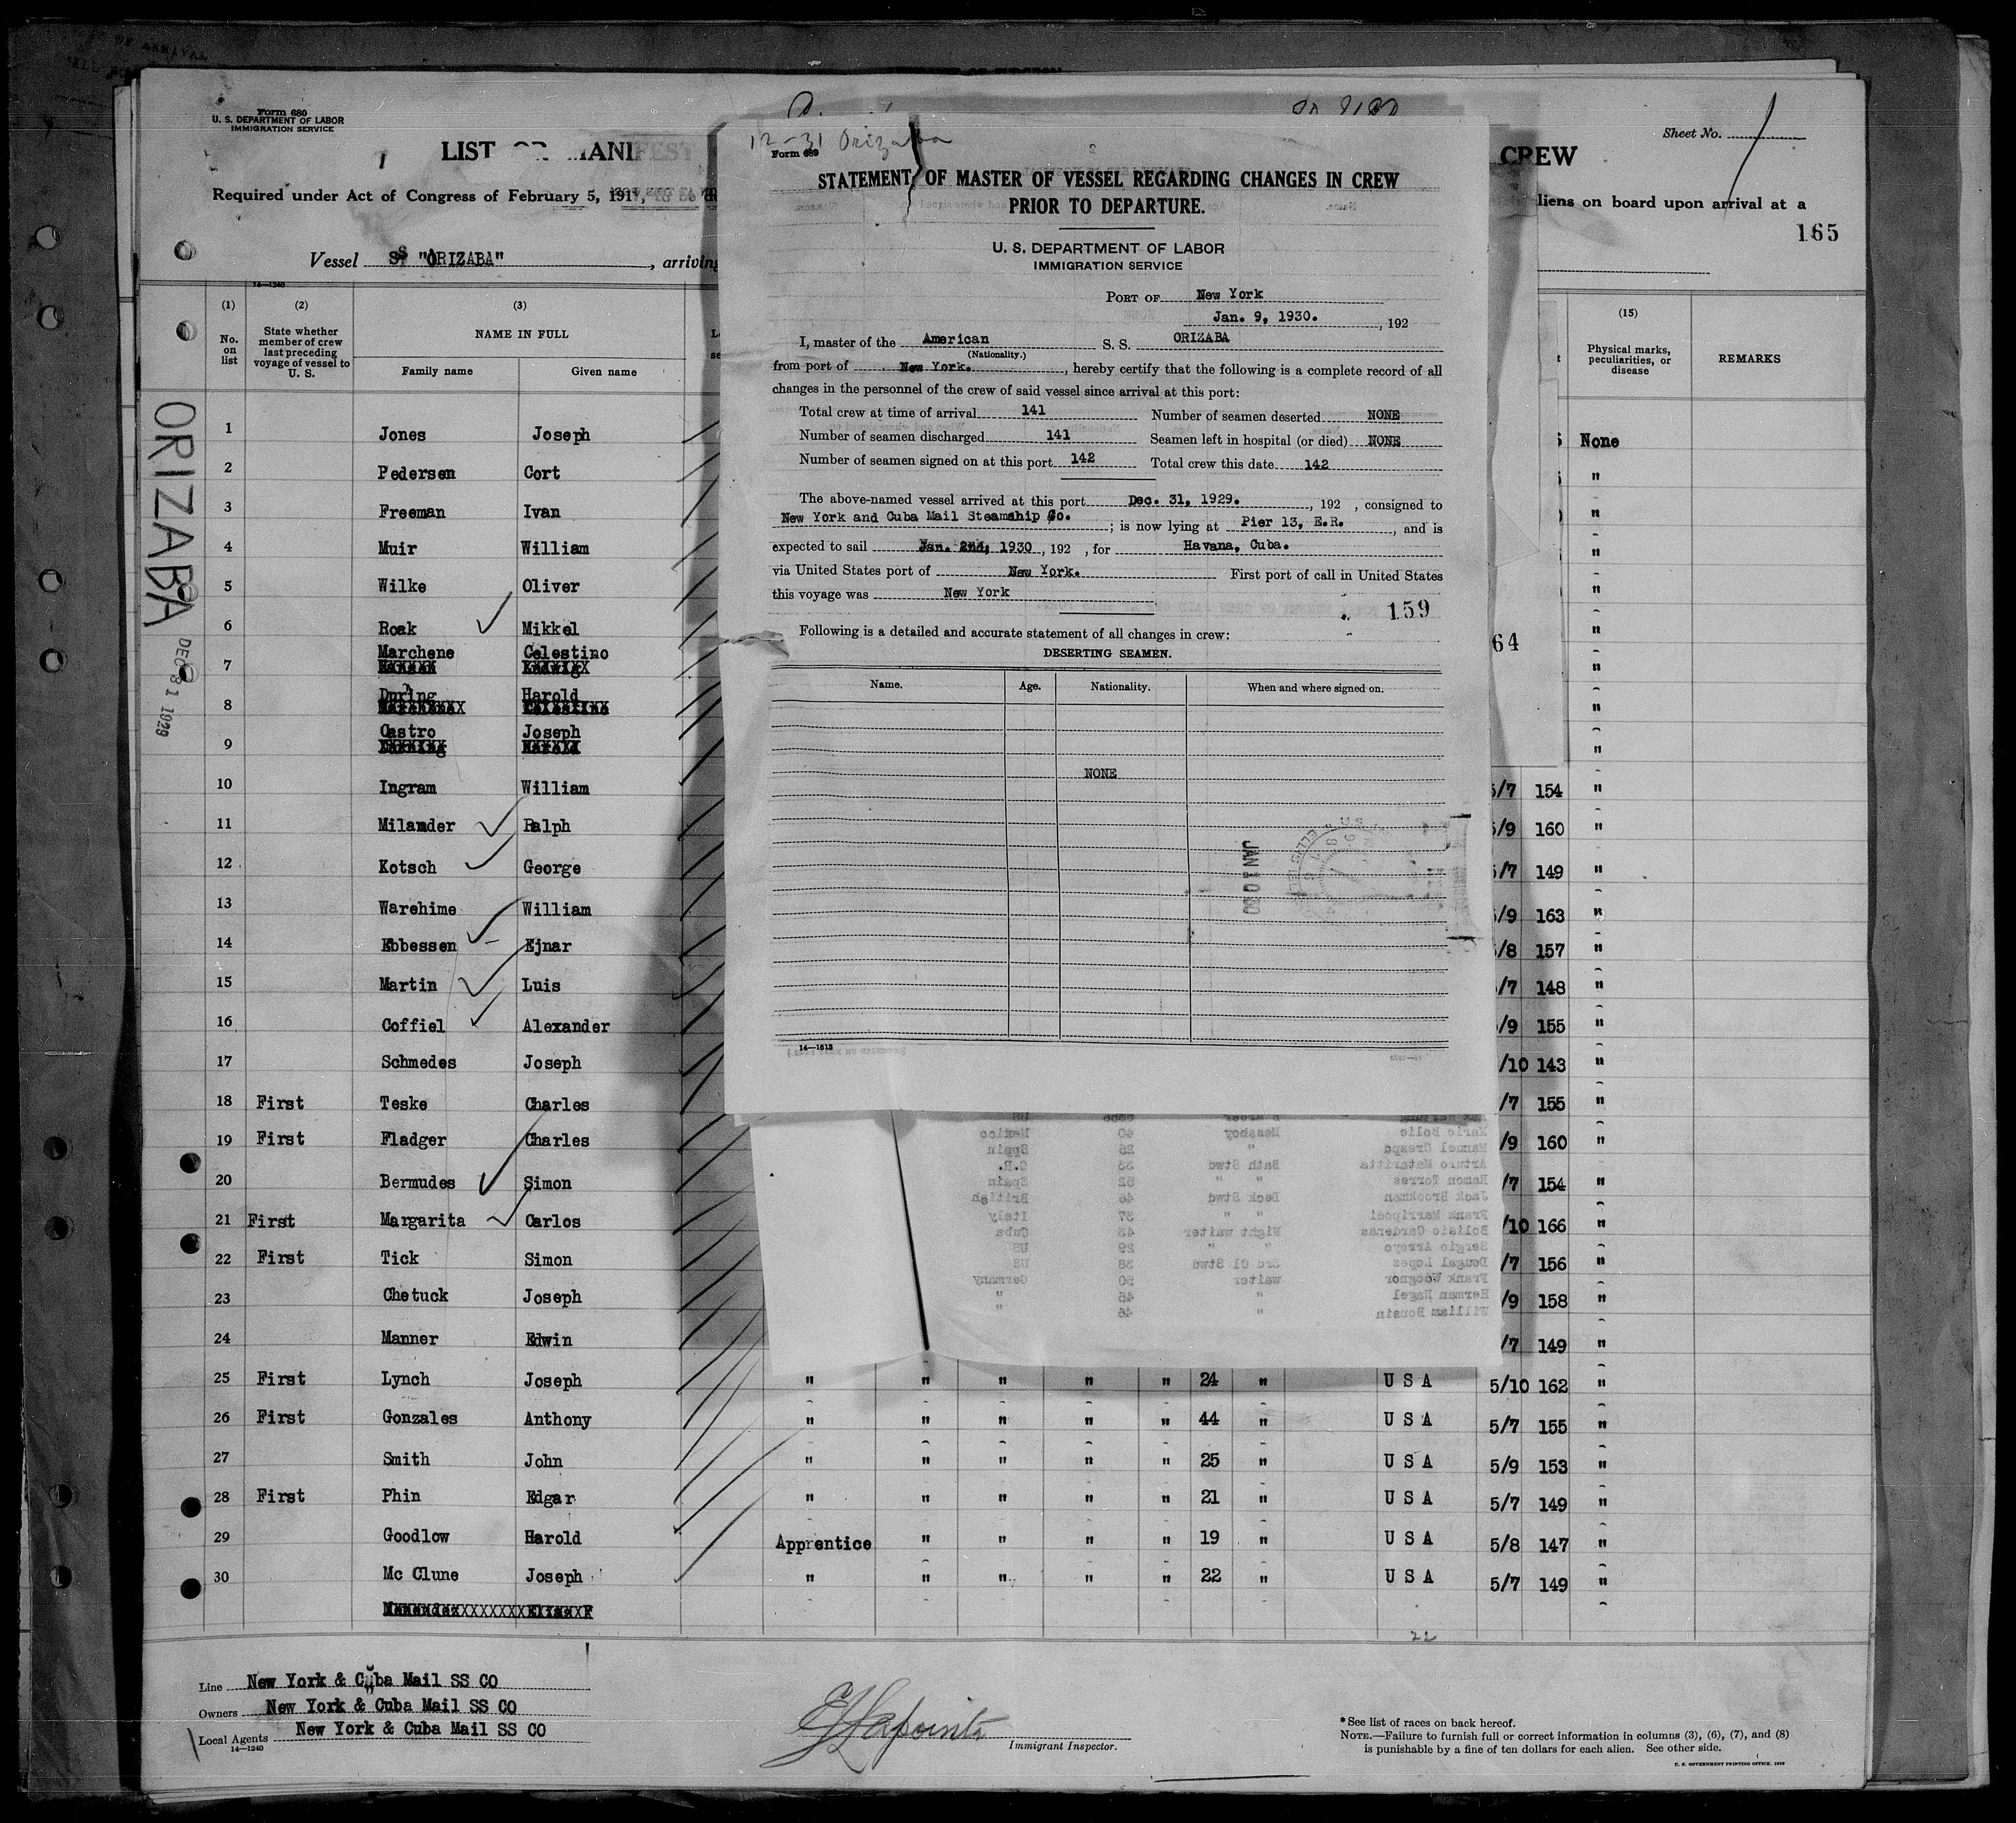 Form 680
U. S. DEPARTMENT OF LABOR
IMMIGRATION SERVICE
LIST OR MANIFEST
CREW
Sheet No.
Required under Act of Congress of February 5, 1917,
liens on board upon arrival at a
165
Vessel SS "ORIZABA", arriving
14—1240
(1) (2) (3) (15)
No. on list
State whether member of crew last preceding voyage of vessel to U. S.
NAME IN FULL
Family name Given name
Physical marks, peculiarities, or disease
REMARKS
ORIZABA
DEC 31 1929
1 Jones Joseph None
2 Pedersen Cort "
3 Freeman Ivan "
4 Muir William "
5 Wilke Oliver "
6 Roak Mikkel "
7 Marchene Celestino "
8 During Harold "
9 Castro Joseph "
10 Ingram William 5/7 154 "
11 Milander Ralph 5/9 160 "
12 Kotsch George 5/7 149 "
13 Warehime William 5/9 163 "
14 Ebbessen Ejnar /8 157 "
15 Martin Luis /7 148 "
16 Coffiel Alexander /9 155 "
17 Schmedes Joseph /10 143 "
18 First Teske Charles /7 155 "
19 First Fladger Charles /9 160 "
20 Bermudes Simon /7 154 "
21 First Margarita Carlos /10 166 "
22 First Tick Simon /7 156 "
23 Chetuck Joseph /9 158 "
24 Manner Edwin /7 149 "
25 First Lynch Joseph " " " " " 24 " U S A 5/10 162 "
26 First Gonzales Anthony " " " " " 44 " U S A 5/7 155 "
27 Smith John " " " " " 25 " U S A 5/9 153 "
28 First Phin Edgar " " " " " 21 " U S A 5/7 149 "
29 Goodlow Harold Apprentice " " " " 19 " U S A 5/8 147 "
30 Mc Clune Joseph " " " " " 22 " U S A 5/7 149 "
22
Line New York & Cuba Mail SS CO
Owners New York & Cuba Mail SS CO
Local Agents New York & Cuba Mail SS CO
14—1240
Immigrant Inspector.
*See list of races on back hereof.
NOTE.—Failure to furnish full or correct information in columns (3), (6), (7), and (8)
is punishable by a fine of ten dollars for each alien. See other side.
U. S. GOVERNMENT PRINTING OFFICE
12-31 Orizaba
Form 689
STATEMENT OF MASTER OF VESSEL REGARDING CHANGES IN CREW
PRIOR TO DEPARTURE.
U. S. DEPARTMENT OF LABOR
IMMIGRATION SERVICE
PORT OF New York
Jan. 9, 1930. , 192
I, master of the American S. S. ORIZABA
(Nationality.)
from port of New York. , hereby certify that the following is a complete record of all
changes in the personnel of the crew of said vessel since arrival at this port:
Total crew at time of arrival 141 Number of seamen deserted NONE
Number of seamen discharged 141 Seamen left in hospital (or died) NONE
Number of seamen signed on at this port 142 Total crew this date 142
The above-named vessel arrived at this port Dec. 31, 1929. , 192 , consigned to
New York and Cuba Mail Steamship Co. ; is now lying at Pier 13, E.R. , and is
expected to sail Jan. 2nd, 1930 , 192 , for Havana, Cuba.
via United States port of New York. First port of call in United States
this voyage was New York
159
64
Following is a detailed and accurate statement of all changes in crew:
DESERTING SEAMEN.
Name. Age. Nationality. When and where signed on.
NONE
JAN 10
14—1613
Mario Bolio Messboy 40 Mexico
Manuel Crespo " 25 Spain
Ramon Torres " " 52 Spain
Jack Brookman Deck Stwd 46 British
Frank Marripodi " " 37 Italy
Cardenas Night waiter 43 Cuba
Sergio Arroyo " " 29 US
Dougal Lopes 3rd Cl Stwd 38 US
Frank Woognor waiter 50 Germany
Herman Nagel " 45 "
William Bonsin " 46 "